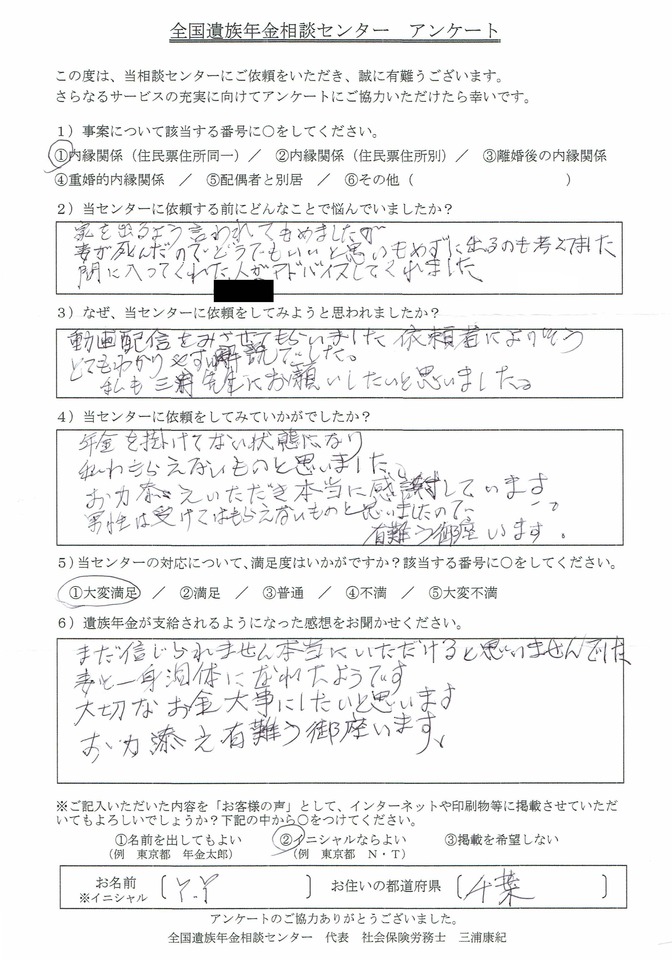 全国遺族年金相談センター　アンケート
この度は、当相談センターにご依頼をいただき、誠に有難うございます。
さらなるサービスの充実に向けてアンケートにご協力いただけたら幸いです。
1）事案について該当する番号に○をしてください。
①内縁関係（住民票住所同一）／　②内縁関係（住民票住所別）／　③離婚後の内縁関係
④重婚的内縁関係　／　⑤配偶者と別居　／　⑥その他（　　　　　　　　　　）
2）当センターに依頼する前にどんなことで悩んでいましたか？
家を出るよう言われてもめましたが
妻が死んだのでどうでもいいと思いもめずに出るのも考えてました
間に入ってくれた人がアドバイスしてくれました
3）なぜ、当センターに依頼をしてみようと思われましたか？
動画配信をみさせてもらいました依頼者によりそう
とてもわかりやすい解説でした。
私も三浦先生にお願いしたいと思いました。
4）当センターに依頼をしてみていかがでしたか？
年金を掛けてない状態になり
私わもらえないものと思いました、
お力添えいただき本当に感謝しています
男性は受けてはもらえないものと思いましたので、
有難う御座います。
5）当センターの対応について、満足度はいかがですか？該当する番号に○をしてください。
①大変満足　／　②満足　／　③普通　／　④不満　／　⑤大変不満
6）遺族年金が支給されるようになった感想をお聞かせください。
まだ信じられません本当にいただけると思いませんでした
妻と一身同体になれたようです
大切なお金大事にしたいと思います
お力添え有難う御座います、
※ご記入いただいた内容を「お客様の声」として、インターネットや印刷物等に掲載させていただ
いてもよろしいでしょうか？下記の中から○をつけてください。
①名前を出してもよい　②イニシャルならよい　③掲載を希望しない
（例　東京都　年金太郎）　（例　東京都　N・T）
お名前　〔 Y.Y 〕　お住いの都道府県　〔 千葉 〕
※イニシャル
アンケートのご協力ありがとうございました。
全国遺族年金相談センター　代表　社会保険労務士　三浦康紀